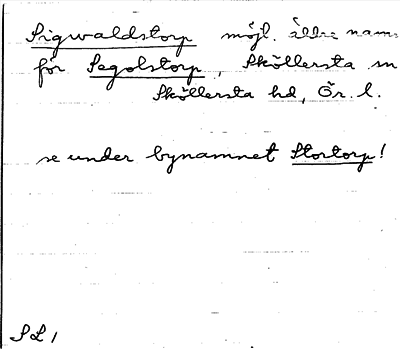 Sigwaldstorp möjl. äldre namn
för Segolstorp, Sköllersta sn
Sköllersta hd, Ör. l.
se under bynamnet Stortorp!
SL1